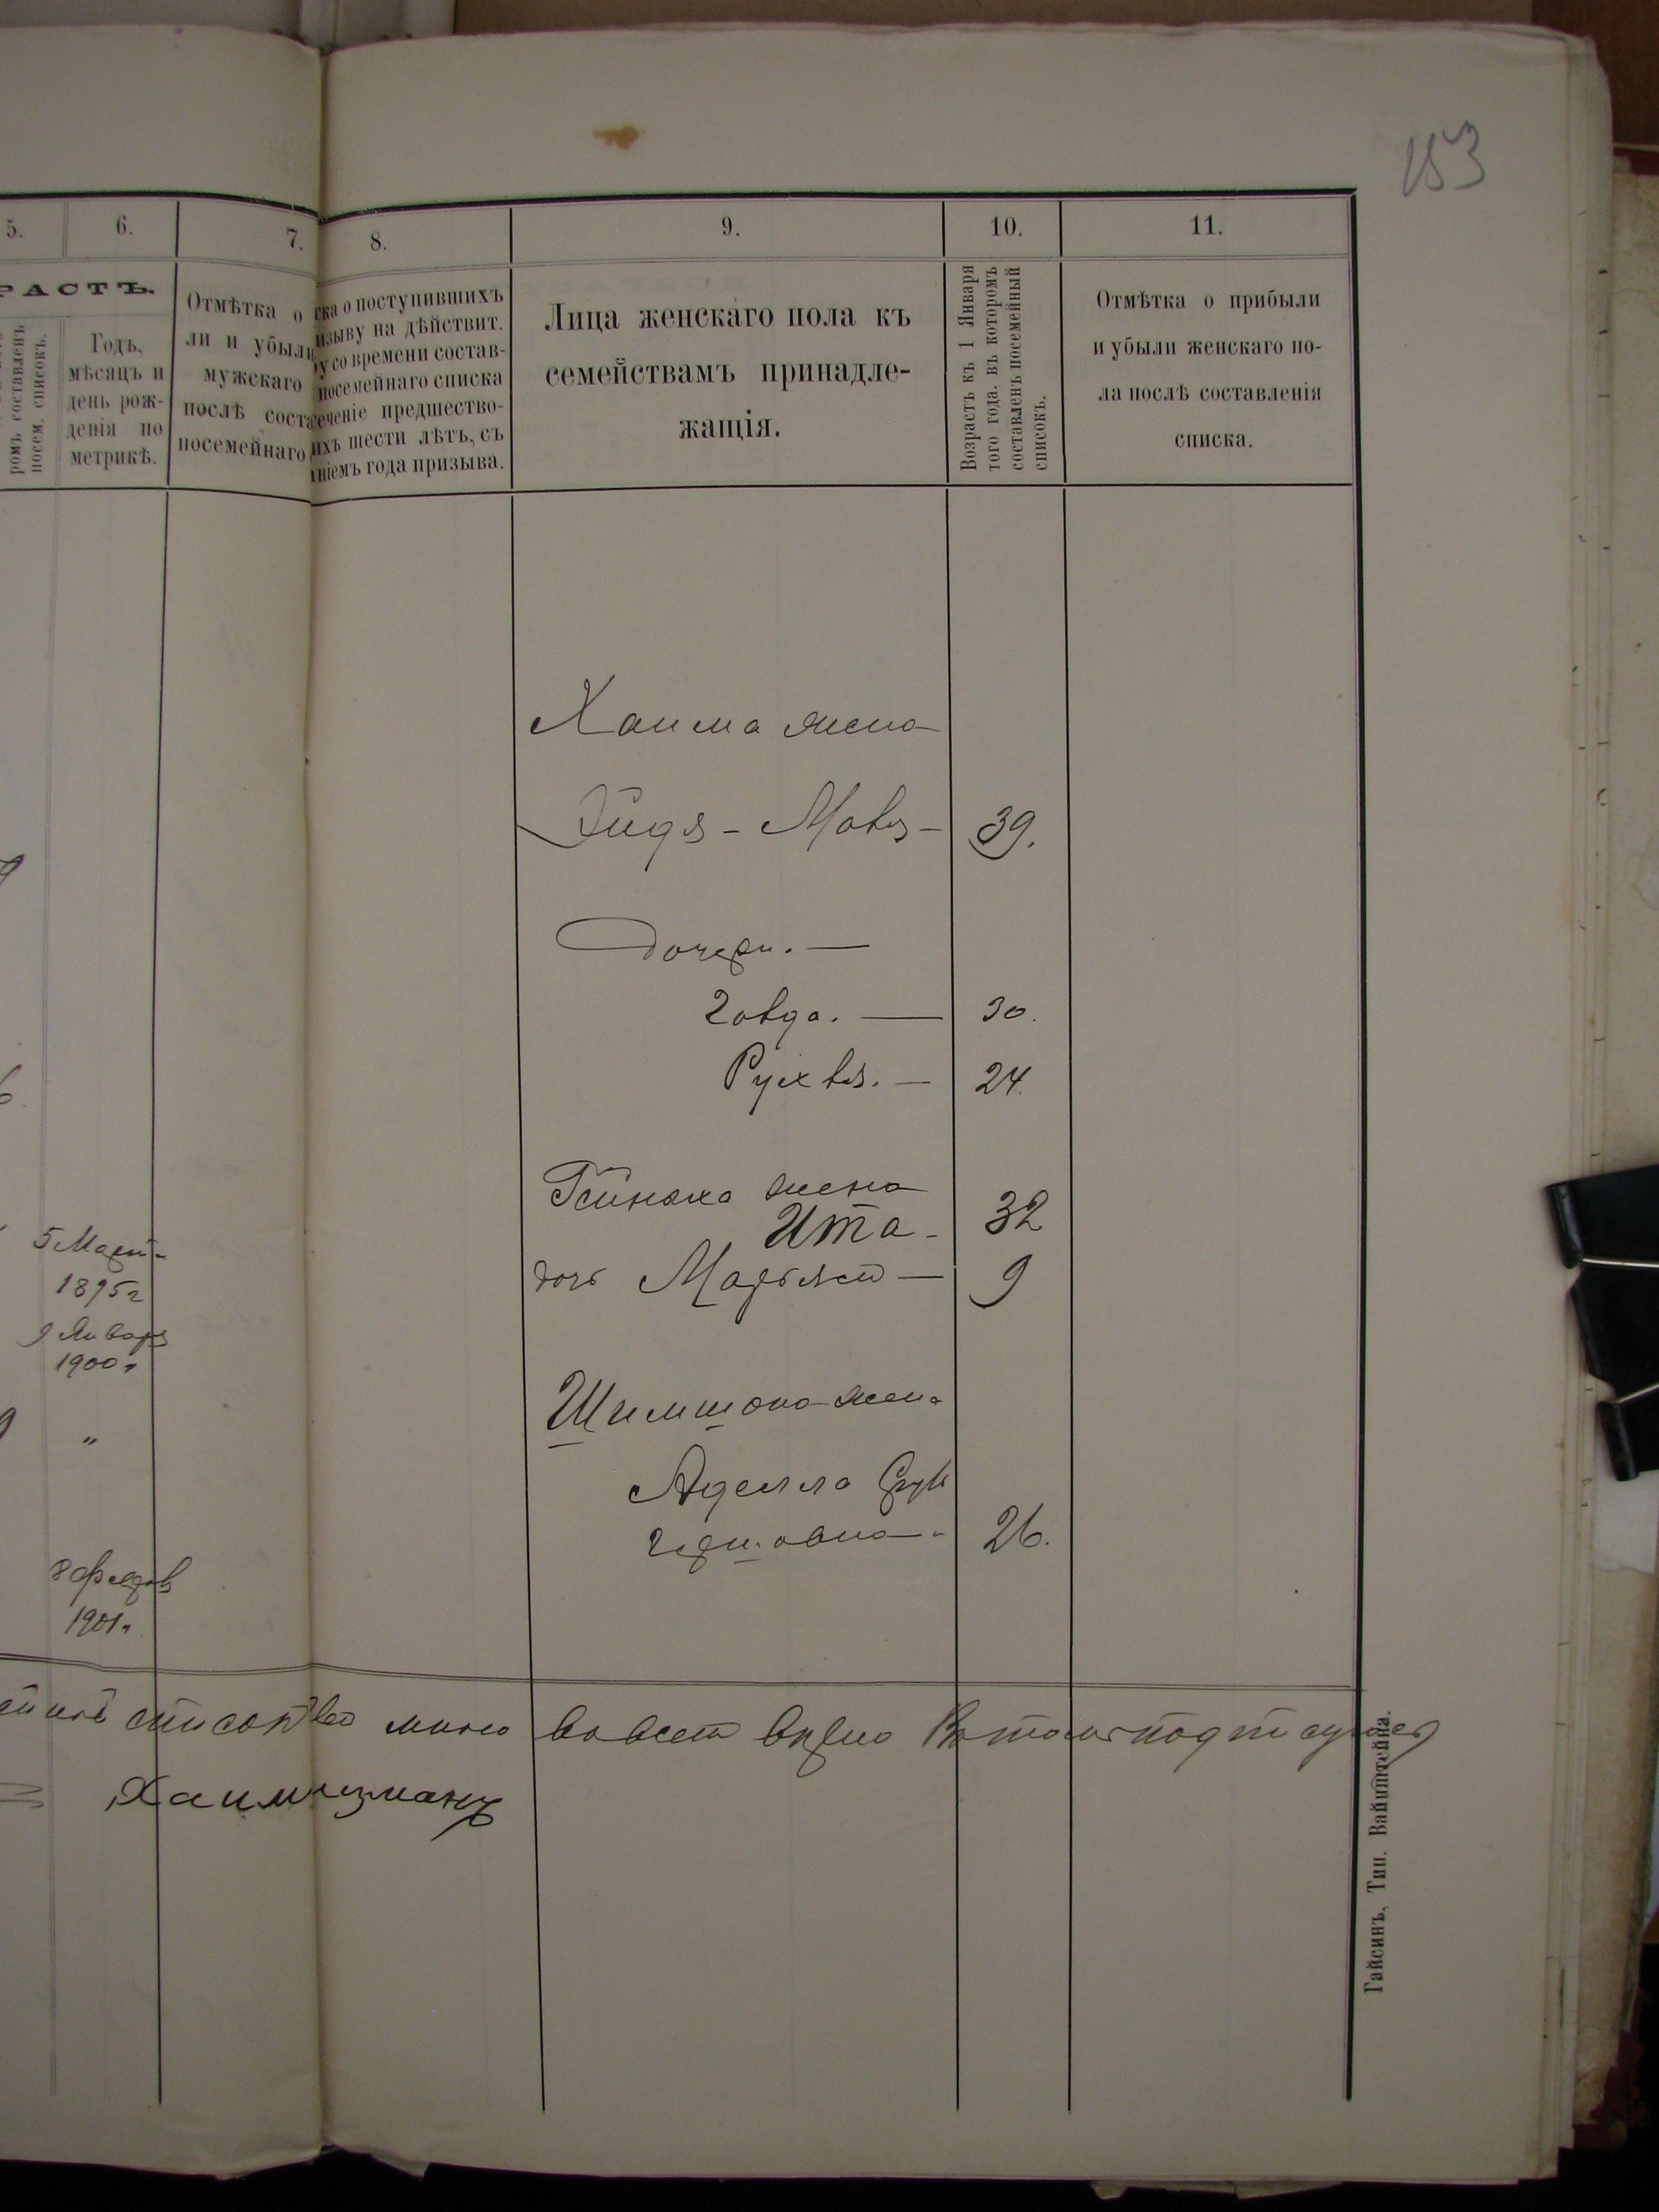 153
5.
6.
7.
8.
9.
10.
11.
РАСТЪ.
ромъ составленъ
посем. списокъ.
Годъ,
мѣсяцъ и
день рож-
денія по
метрикѣ.
Отмѣтка о
ли и убыли
мужскаго
послѣ соста
посемейнаго
ка о поступившихъ
изыву на дѣйствит.
у со времени состав-
посемейнаго списка
еченіе предшество-
ихъ шести лѣтъ, съ
ніемъ года призыва.
Лица женскаго пола къ
семействамъ принадле-
жащія.
Возрастъ къ 1 Января
того года, въ которомъ
составленъ посемейный
списокъ.
Отмѣтка о прибыли
и убыли женскаго по-
ла послѣ составленія
списка.
Хаима жена
39.
Дочери. —
Ховда. — 30.
Рухля. — 24.
жена
Ита - 32
дочь Марьям — 9
5 Март
1895 г
9 Январ
1900 г
"
Шимшона жена
Аделла
26.
8 Февр
1901 г
списокъ мною во всем вѣрно в том подписуюсь
Хаим
Гайсинъ, Тип. Вайнштейна.